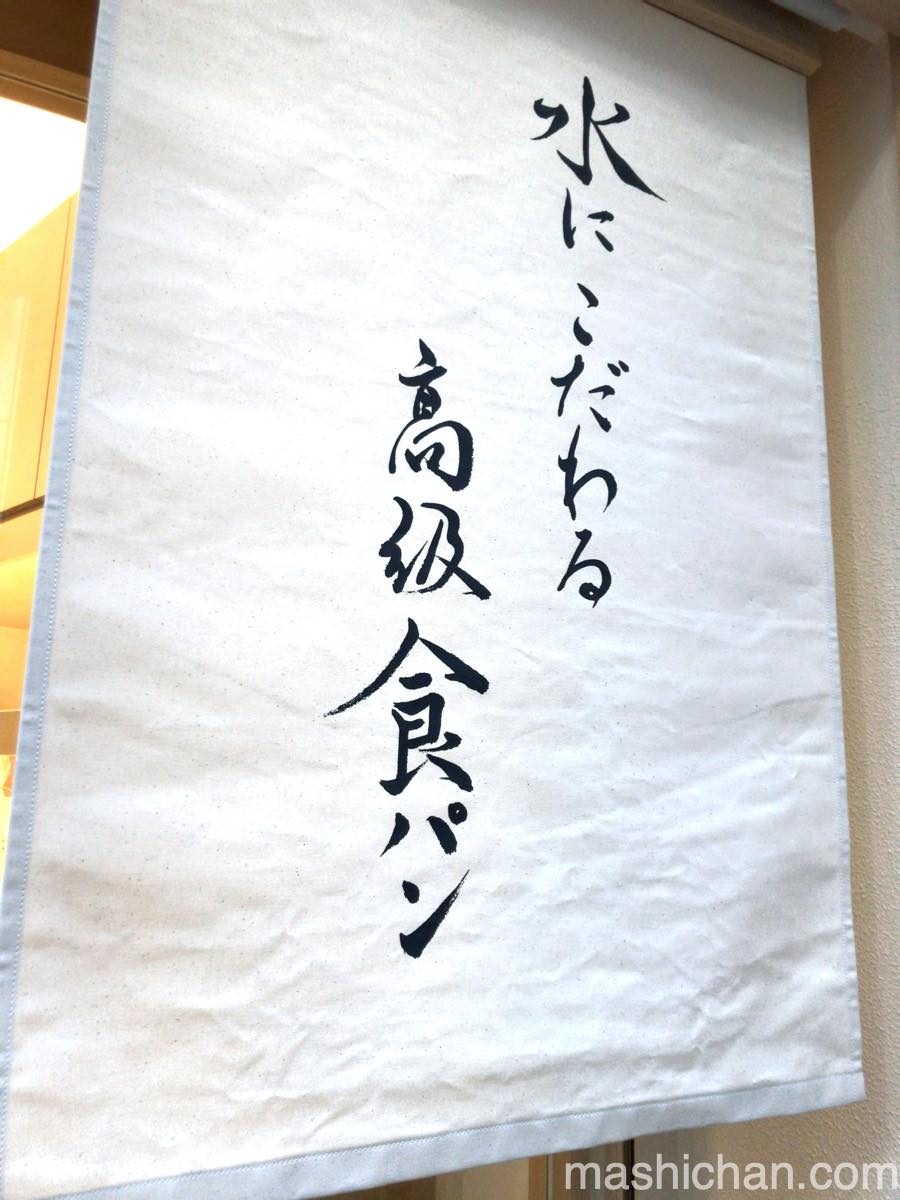 水にこだわる
高級食パン
mashichan.com